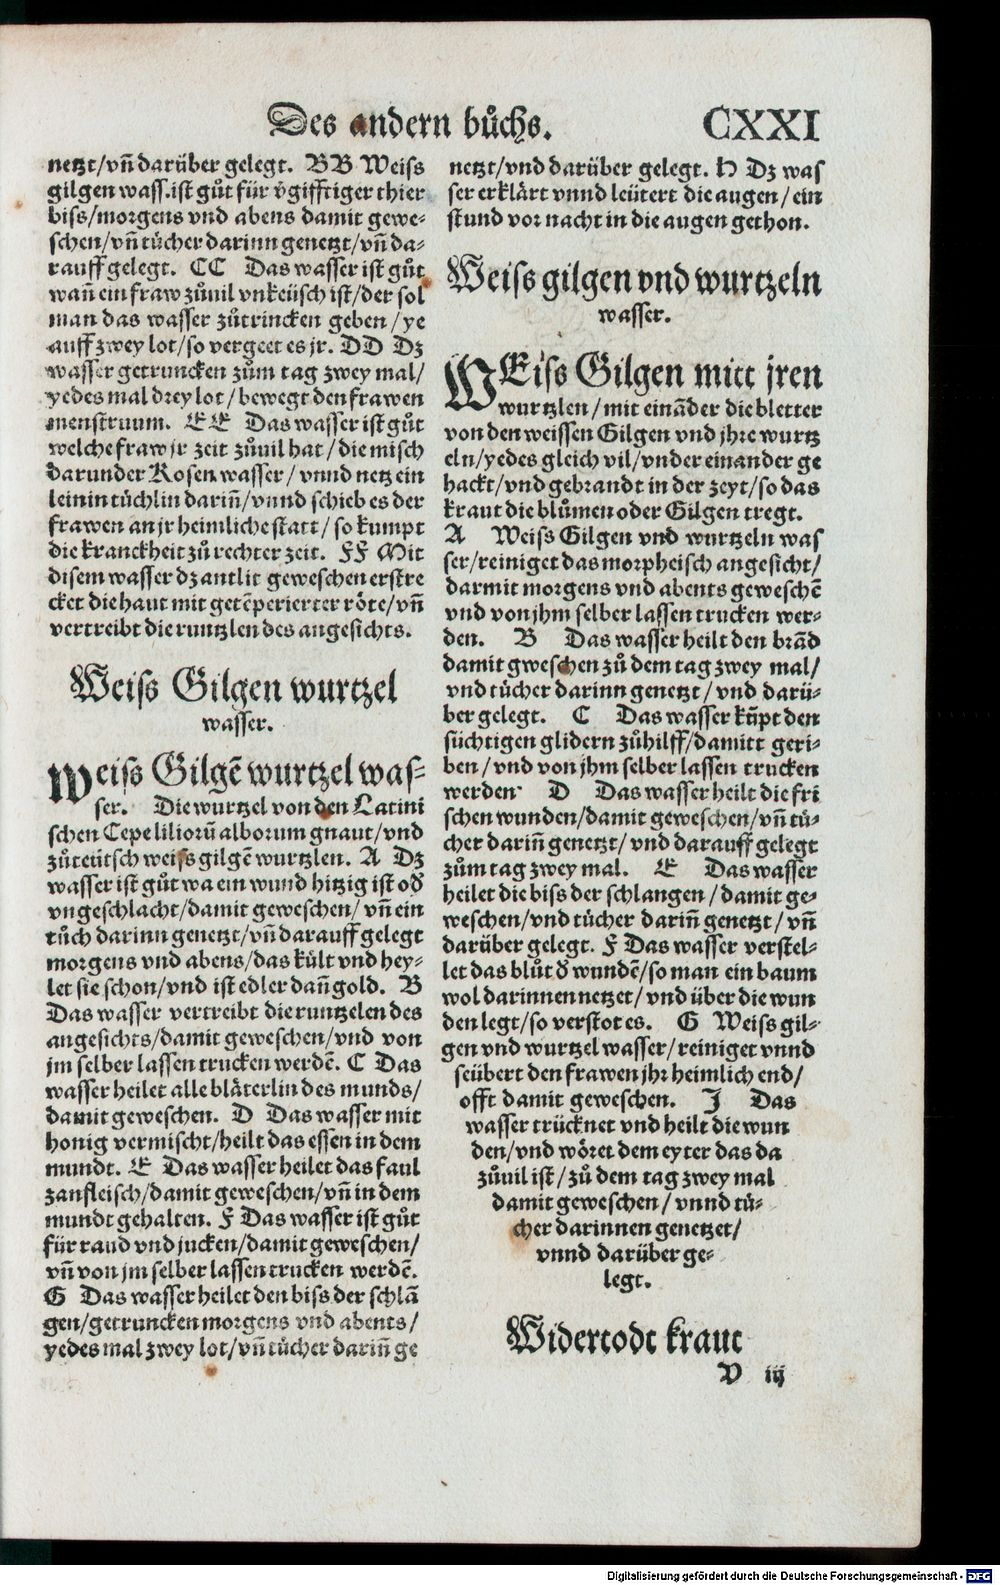 Des andern bůchs. CXXI
netzt/vñ darüber gelegt. BB Weiss
gilgen wass. ist gůt für v̄gifftiger thier
biss/morgens vnd abens damit gewe-
schen/vñ tücher darinn genetzt/vñ da-
rauff gelegt. CC Das wasser ist gůt
wañ ein fraw zůuil vnkeüsch ist/der sol
man das wasser zůtrincken geben/ye
auff zwey lot/so vergeet es jr. DD Dz
wasser getruncken zům tag zwey mal/
yedes mal drey lot/bewegt den frawen
menstruum. EE Das wasser ist gůt
welche fraw jr zeit zůuil hat/die misch
darunder Rosen wasser/vnnd netz ein
leinin tüchlin dariñ/vnnd schieb es der
frawen an jr heimliche statt/so kumpt
die kranckheit zů rechter zeit. FF Mit
disem wasser dz antlit geweschen erstre
cket die haut mit getēperierter röte/vñ
vertreibt die runtzlen des angesichts.
Weiss Gilgen wurtzel
wasser.
Weiss Gilgē wurtzel was-
ser. Die wurtzel von den Latini
schen Cepe liliorū alborum gnaut/vnd
zůteütsch weiss gilgē wurtzlen. A Dz
wasser ist gůt wa ein wund hitzig ist od̄
vngeschlacht/damit geweschen/vñ ein
tůch darinn genetzt/vñ darauff gelegt
morgens vnd abens/das kült vnd hey-
let sie schon/vnd ist edler dañ gold. B
Das wasser vertreibt die runtzelen des
angesichts/damit geweschen/vnd von
jm selber lassen trucken werdē. C Das
wasser heilet alle bläterlin des munds/
damit geweschen. D Das wasser mit
honig vermischt/heilt das essen in dem
mundt. E Das wasser heilet das faul
zanfleisch/damit geweschen/vñ in dem
mundt gehalten. F Das wasser ist gůt
für raud vnd jucken/damit geweschen/
vñ von jm selber lassen trucken werdē.
G Das wasser heilet den biss der schlā
gen/getruncken morgens vnd abents/
yedes mal zwey lot/vñ tücher dariñ ge
netzt/vnd darüber gelegt. H Dz was
ser erklärt vnnd leütert die augen/ein
stund vor nacht in die augen gethon.
Weiss gilgen vnd wurtzeln
wasser.
WEiss Gilgen mitt jren
wurtzlen/mit eināder die bletter
von den weissen Gilgen vnd jhre wurtz
eln/yedes gleich vil/vnder einander ge
hackt/vnd gebrandt in der zeyt/so das
kraut die blůmen oder Gilgen tregt.
A Weiss Gilgen vnd wurtzeln was
ser/reiniget das morpheisch angesicht/
darmit morgens vnd abents geweschē
vnd von jhm selber lassen trucken wer-
den. B Das wasser heilt den brād
damit gweschen zů dem tag zwey mal/
vnd tücher darinn genetzt/vnd darü-
ber gelegt. C Das wasser kūpt den
süchtigen glidern zůhilff/damitt geri-
ben/vnd von jhm selber lassen trucken
werden. D Das wasser heilt die fri
schen wunden/damit geweschen/vñ tü-
cher dariñ genetzt/vnd darauff gelegt
zům tag zwey mal. E Das wasser
heilet die biss der schlangen/damit ge-
weschen/vnd tücher dariñ genetzt/vñ
darüber gelegt. F Das wasser verstel-
let das blůt d̄ wundē/so man ein baum
wol darinnen netzet/vnd über die wun
den legt/so verstot es. G Weiss gil-
gen vnd wurtzel wasser/reiniget vnnd
seübert den frawen jhr heimlich end/
offt damit geweschen. J Das
wasser trücknet vnd heilt die wun
den/vnd wöret dem eyter das da
zůuil ist/zů dem tag zwey mal
damit geweschen/vnnd tü-
cher darinnen genetzet/
vnnd darüber ge-
legt.
Widertodt kraut
V iij
Digitalisierung gefördert durch die Deutsche Forschungsgemeinschaft - DFG